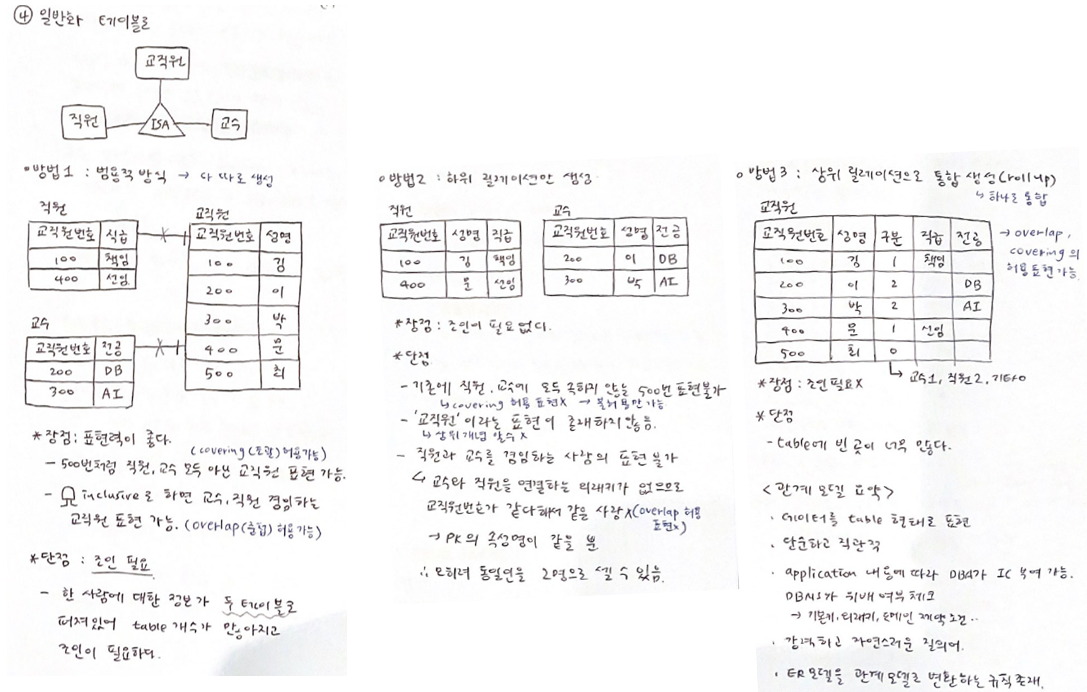 ④ 일반화 테이블로
교직원
직원
ISA
교수
방법1 : 범용적 방식 → 다 따로 생성
직원
교직원번호 직급
100 책임
400 선임
교직원
교직원번호 성명
100 김
200 이
300 박
400 문
500 최
교수
교직원번호 전공
200 DB
300 AI
*장점: 표현력이 좋다.
(covering(포괄)허용가능)
- 500번처럼 직원, 교수 모두 아닌 교직원 표현 가능.
- inclusive로 하면 교수, 직원 겸임하는
교직원 표현 가능. (overlap(중첩)허용가능)
*단점 : 조인 필요
- 한 사람에 대한 정보가 두 테이블로
퍼져있어 table 개수가 많아지고
조인이 필요하다.
방법2 : 하위 릴레이션만 생성
직원
교직원번호 성명 직급
100 김 책임
400 문 선임
교수
교직원번호 성명 전공
200 이 DB
300 박 AI
*장점: 조인이 필요없다.
*단점
- 기존에 직원, 교수에 모두 속하지 않는 500번 표현불가
↳ covering 허용 표현X → 불허용만 가능
- '교직원' 이라는 표현이 존재하지않음.
↳ 상위개념 알수X
- 직원과 교수를 겸임하는 사람의 표현 불가
↳ 교수와 직원을 연결하는 외래키가 없으므로
교직원번호가 같다해서 같은 사람X (overlap 허용 표현X)
→ PK의 속성명이 같을 뿐
∴ 오히려 동일인을 2명으로 셀 수 있음.
방법3 : 상위 릴레이션으로 통합 생성(roll up)
↳ 하나로 통합
교직원
교직원번호 성명 구분 직급 전공
100 김 1 책임
200 이 2 DB
300 박 2 AI
400 문 1 선임
500 최 0
→ overlap,
covering의
허용표현가능
↳ 교수1, 직원2, 기타0
*장점: 조인필요X
*단점
- table에 빈 곳이 너무 많다.
<관계 모델 요약>
· 데이터를 table 형태로 표현
· 단순하고 직관적
· application 내용에 따라 DBA가 IC 부여 가능.
DBMS가 위배 여부 체크
→ 기본키, 외래키, 도메인 제약 조건..
· 강력하고 자연스러운 질의어.
· ER모델을 관계모델로 변환하는 규칙존재.